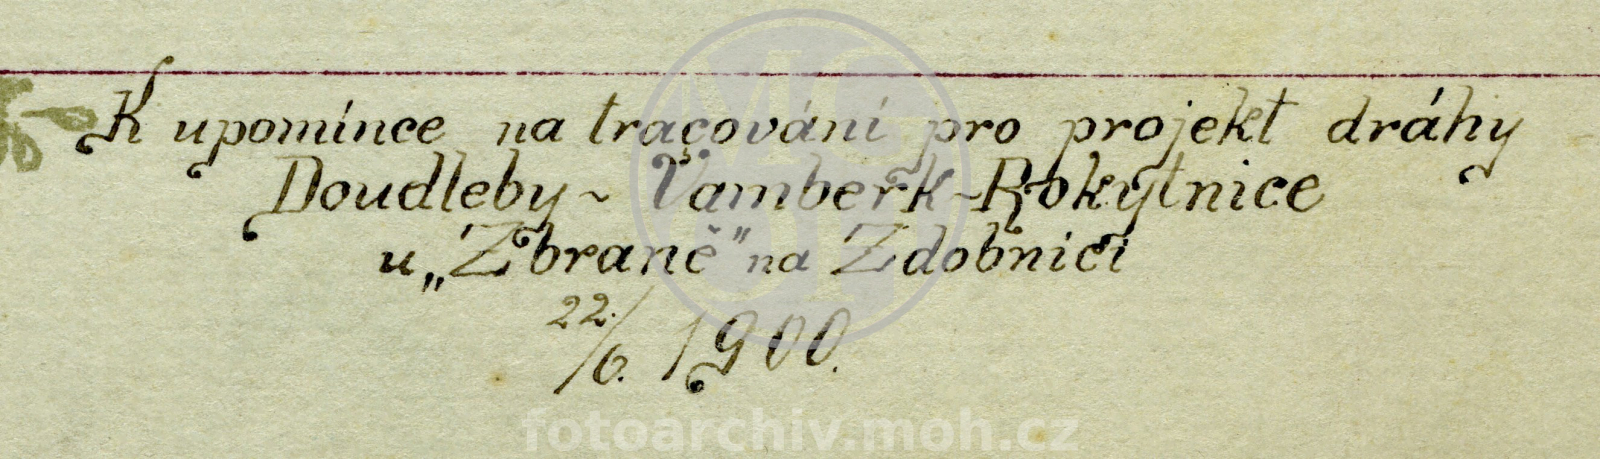 K upomínce na traçování pro projekt dráhy
Doudleby ~ Vamberk - Rokytnice
u „Zbraně" na Zdobnici
22./6. 1900.
fotoarchiv.moh.cz